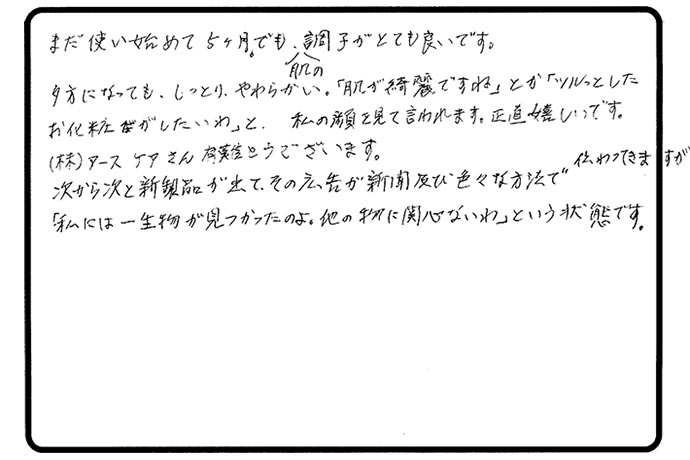 まだ使い始めて5ヶ月。でも、肌の調子がとても良いです。
夕方になっても、しっとり、やわらかい。「肌が綺麗ですね」とか「ツルっとした
お化粧がしたいわ」と、私の顔を見て言われます。正直嬉しいです。
(株)アースケアさん 有難うございます。
次から次と新製品が出て、その広告が新聞及び色々な方法で伝わってきますが
「私には一生物が見つかったのよ。他の物に関心ないわ」という状態です。